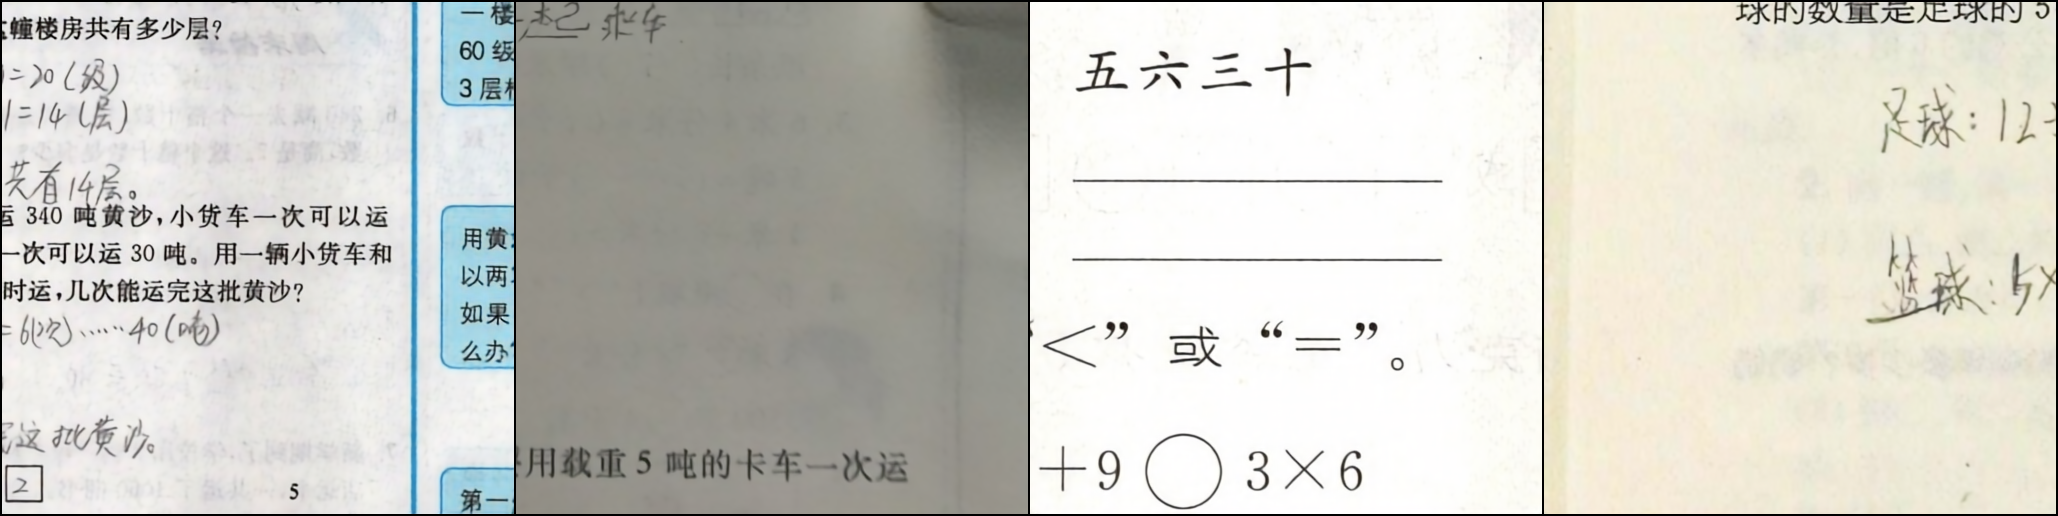 幢楼房共有多少层?
=20(级)
1=14(层)
共有14层。
运 340 吨黄沙,小货车一次可以运
一次可以运 30 吨。用一辆小货车和
时运,几次能运完这批黄沙?
=6(次)……40(吨)
这批黄沙。
2
5
一楼
60 级
3 层
用黄
以两
如果
么办
第一
用载重 5 吨的卡车一次运
五六三十
<” 或 “=”。
+9 ○ 3×6
球的数量是足球的 5
足球:12÷
篮球:5×